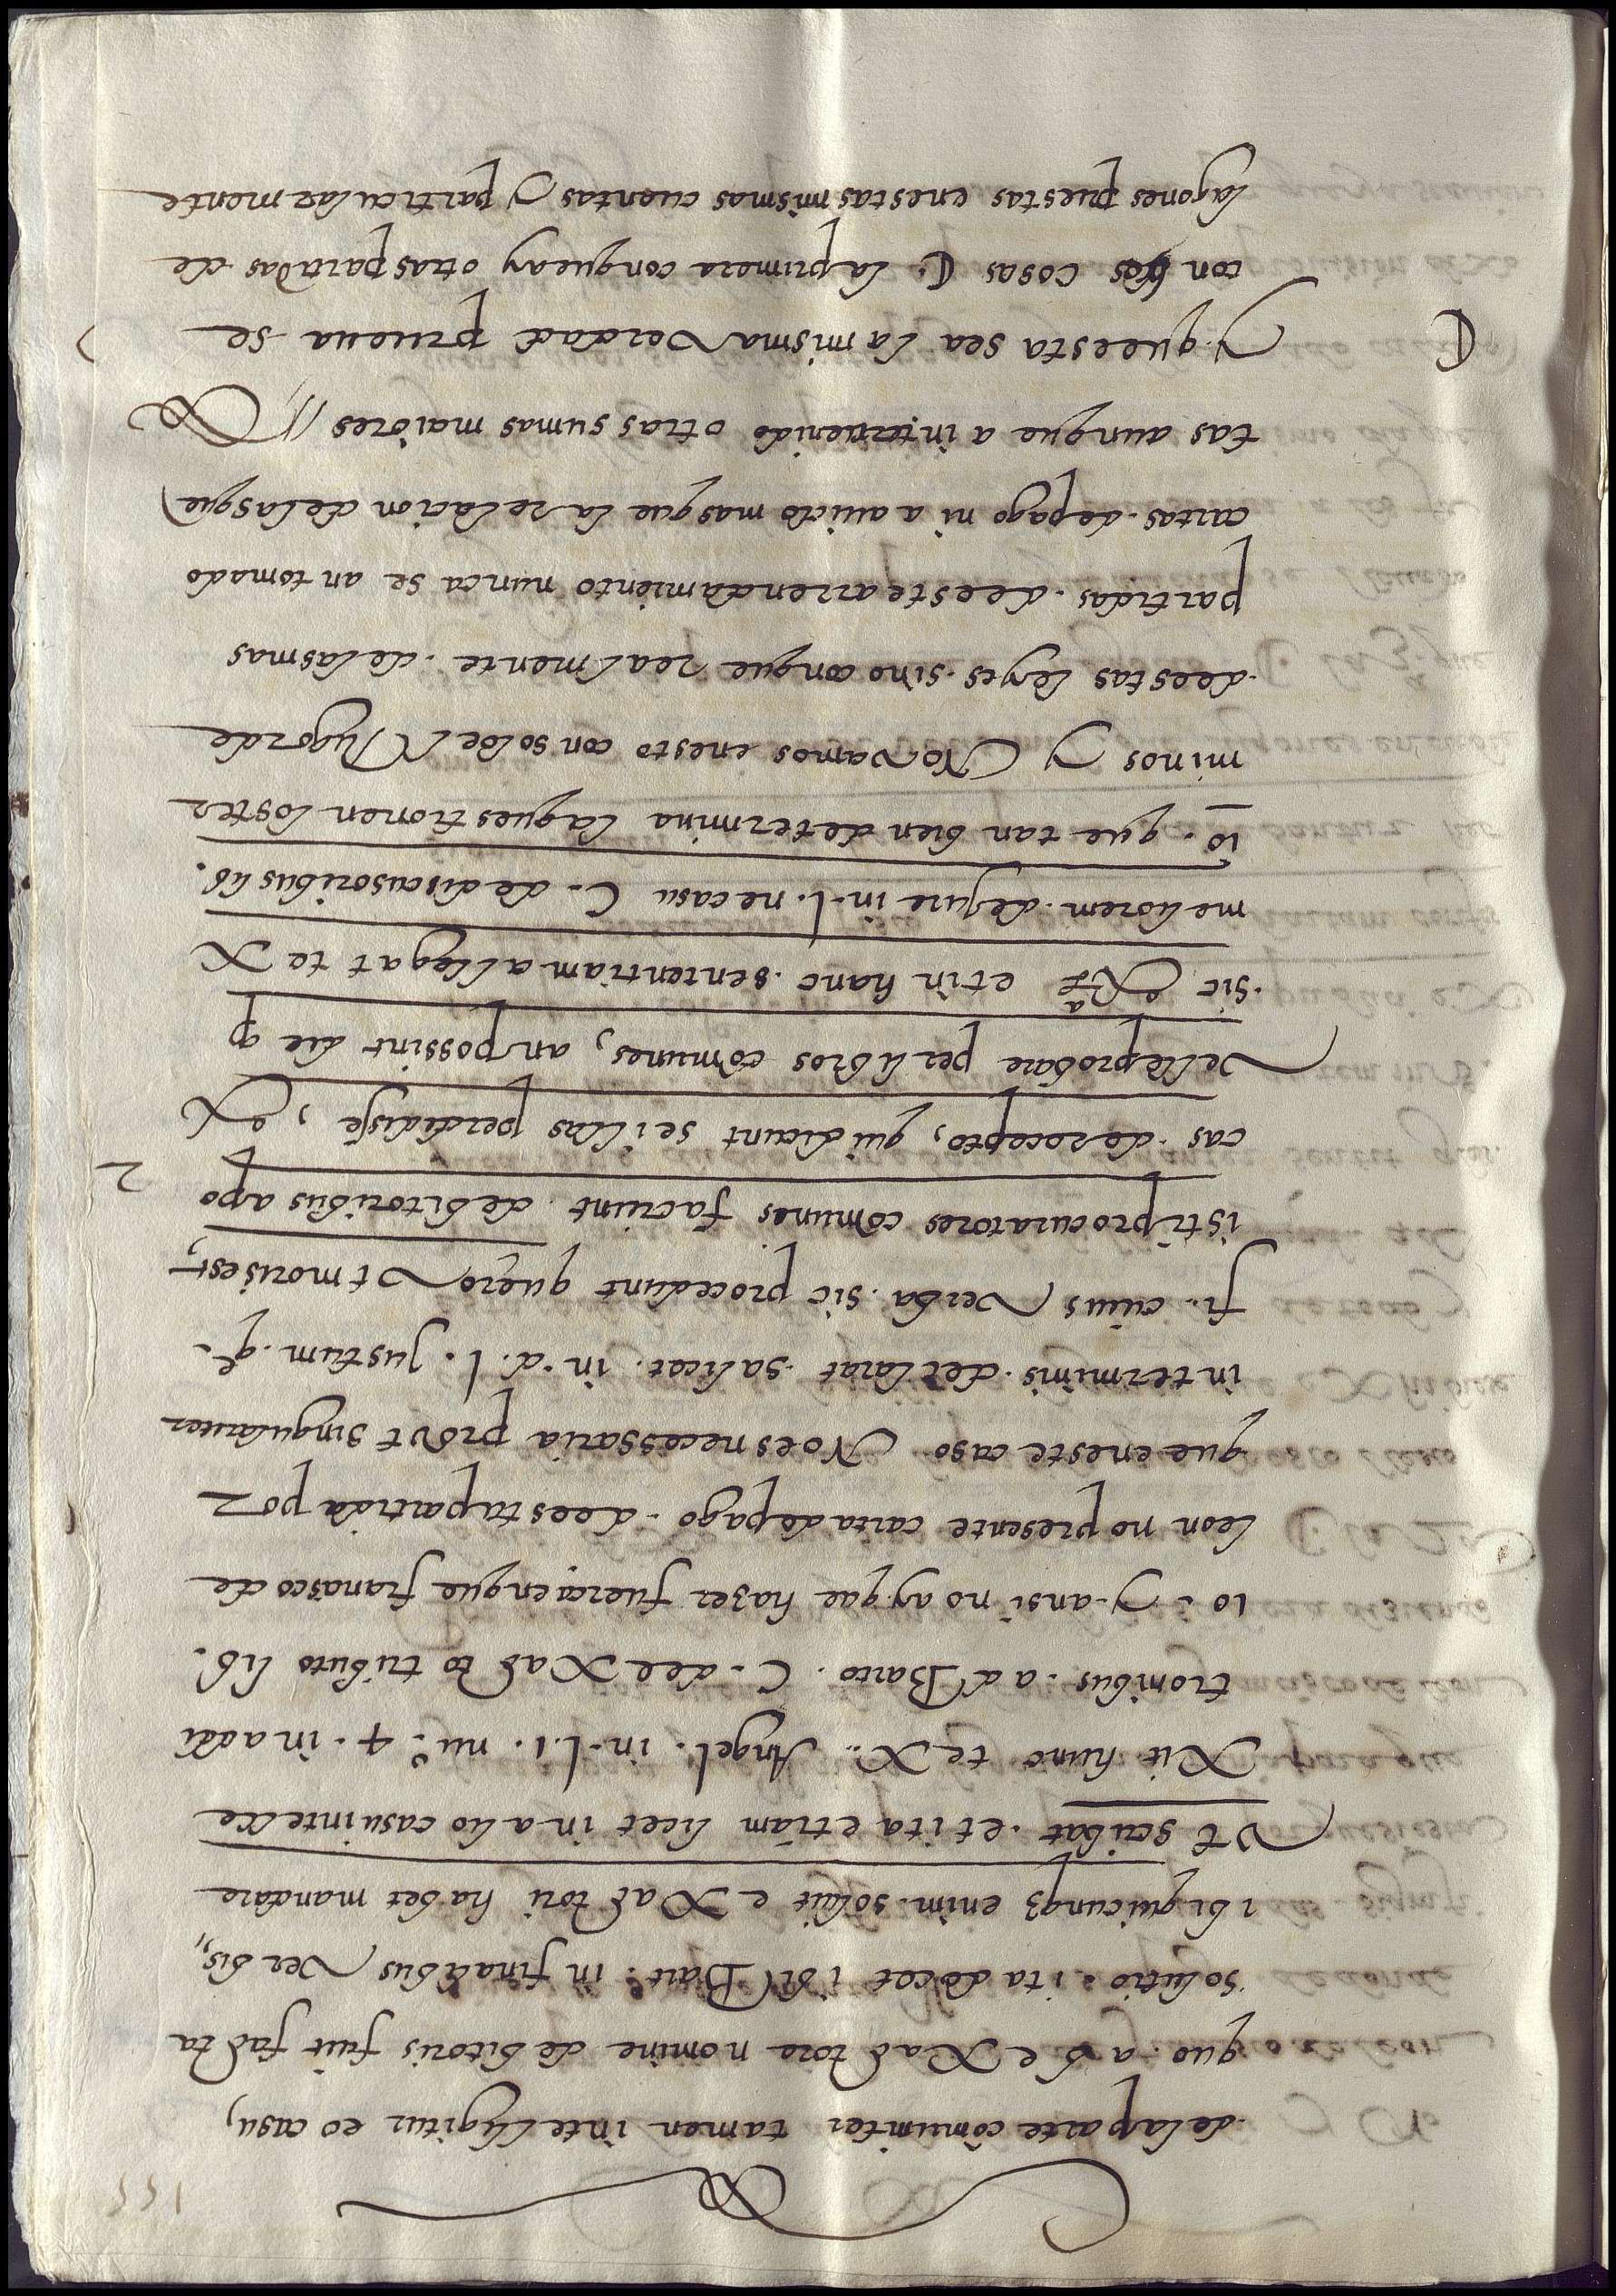 155
dela parte comuniter tamen intelligitur eo casu,
quo. ab eXactore nomine debitoris fuit facta
solutio: ita docet ibi Bart. in finalibus verbis,,
ibi quicunq3 enim soluit eXactori habet mandare
vt scribat. et ita etiam licet in alio casu intelle
Xit hunc teX.. Angel. in.l.1. nu.º 4. in addi
tionibus. ad Barto. C. de eXactotributo lib.
10: y ansi no ay que hazer fuerça enque francisco de
leon no presente carta de pago. deesta partida por
que eneste caso No es necessaria prout singulariter
interminis. declarat salicet. in. d. l. justum. qº.
fi.. cuius verba. sic procedunt quero vt moris est,
isti procuratores comunes faciunt debitoribus apo
cas. de recepto, qui dicunt se illas perdidisse, et
velle probare per libros comunes, an possint dic q
sic eX Rª et in hanc. sententiam allegat teX
meliorem. de jure in. l. ne casu C. de discusoribus lib.
10. que tan bien determina la questionen loster
minos y No vamos enesto con solo el Rygor de
deestas leyes. sino conque realmente. de las mas
partidas. deeste arrendamiento nunca se an tomado
cartas. de pago ni a auido mas que la relacion delas que
tas aunque a interuenido otras sumas maiores //
C y questa sea la misma verdad prueua se
con dos cosas C. la primera conque ay otras partidas de
lagones puestas enestas mismas cuentas y particularmente